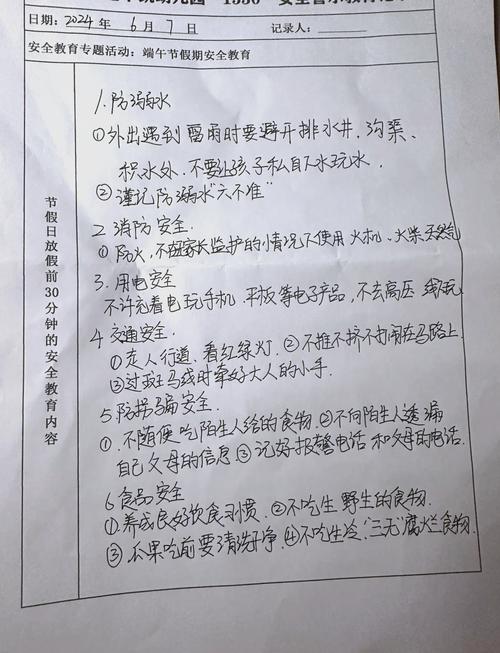 幼儿园"1530"安全警示教育记
日期：2024年 6月 7日 记录人：
安全教育专题活动：端午节假期安全教育
节假日放假前30分钟的安全教育内容
1.防溺水
①外出遇到雷雨时要避开排水井、沟渠、
积水处.不要让孩子私自下水玩水.
②谨记防溺水"六不准"
2.消防安全.
①防火,不在家长监护的情况不使用火机、火柴天然气
3.用电安全
不许充着电玩手机 平板等电子产品,不去高压 线玩
4.交通安全.
①走人行道、看红绿灯.②不推不挤不打闹在马路上.
③过斑马线时牵好大人的小手.
5.防拐骗安全.
①.不随便吃陌生人给的食物.②不向陌生人透漏
自己父母的信息③记好报警电话和父母的电话.
6.食品安全
①养成良好饮食习惯.②不吃生 野生的食物.
③瓜果吃前要清洗干净.④不吃生冷."三无"腐烂食物.